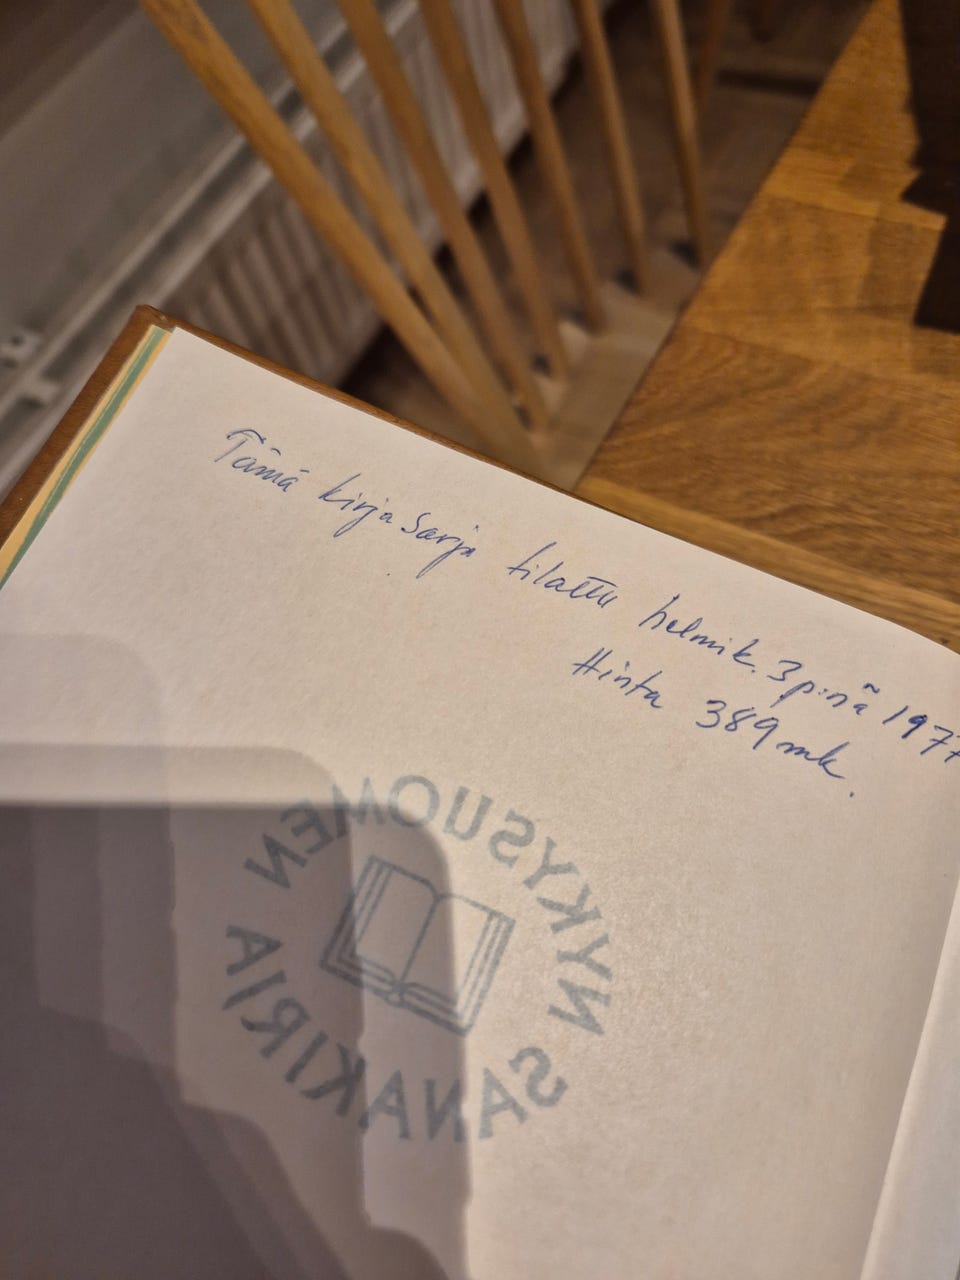 Tämä kirjasarja tilattu helmik. 3 p:nä 1977
Hinta 389 mk.
NYKYSUOMEN
SANAKIRJA